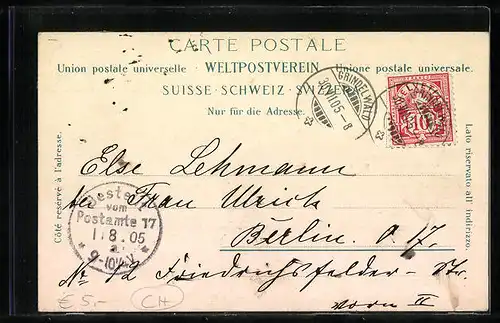 CARTE POSTALE
Union postale universelle · WELTPOSTVEREIN · Unione postale universale.
SUISSE · SCHWEIZ · SVIZZERA
Nur für die Adresse.
GRINDELWALD
31.VII.05-8
10
Côté reservé à l'adresse.
Lato riservato all' indirizzo.
Else Lehmann
bei Frau Ulrich
Berlin. O. 17.
No 12 Friedrichsfelder-Str.
vorn II
Bestellt
vom
Postamte 17
1.8.05
9-10¼V.
€ 5.-
CH